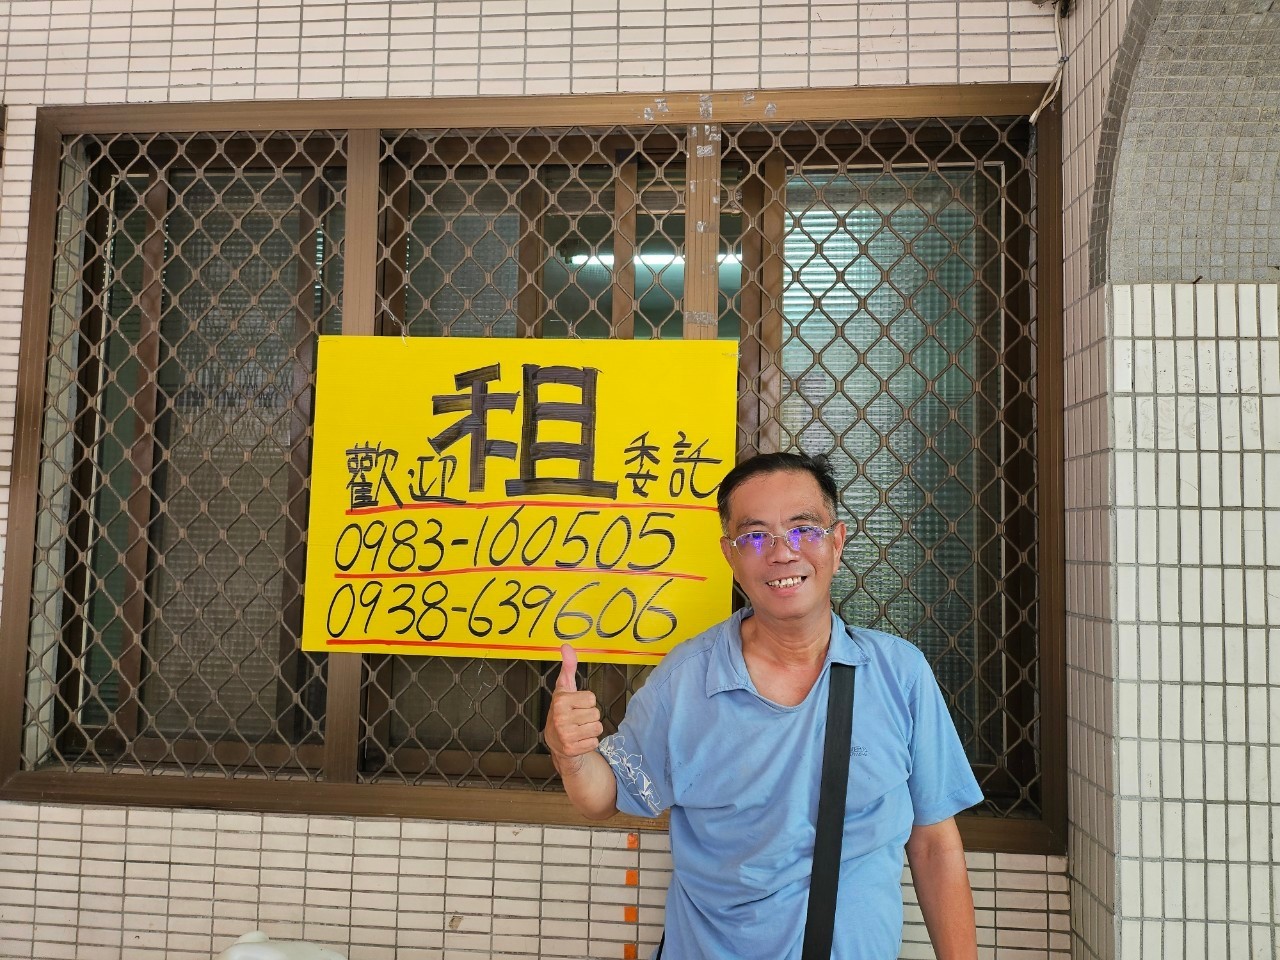 租
歡迎 委託
0983-160505
0938-639606